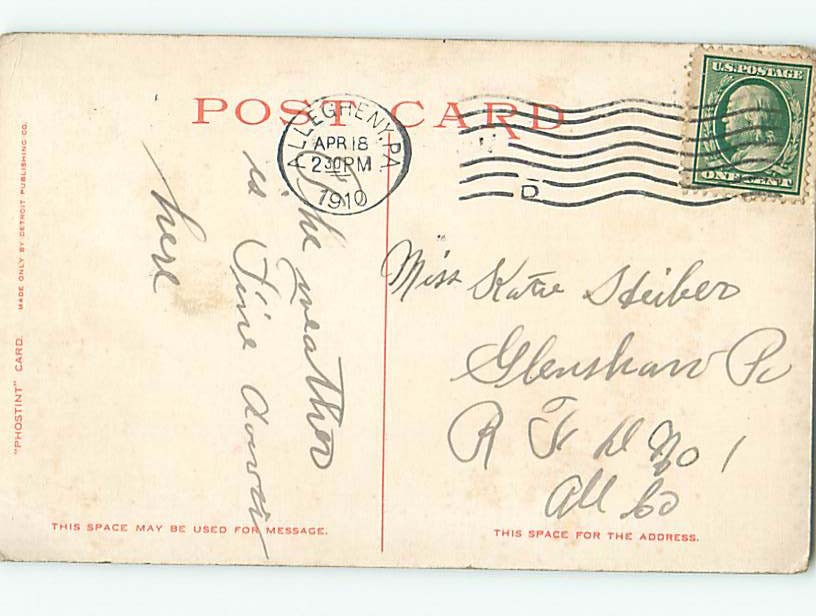 POST CARD
ALLEGHENY, PA.
APR 18
2 30 PM
1910
D
U.S. POSTAGE
ONE CENT
The weather
is Fine down
here
Miss Katie Steiber
Glenshaw Pa
R F D No 1
All Co
THIS SPACE MAY BE USED FOR MESSAGE.
THIS SPACE FOR THE ADDRESS.
"PHOSTINT" CARD. MADE ONLY BY DETROIT PUBLISHING CO.